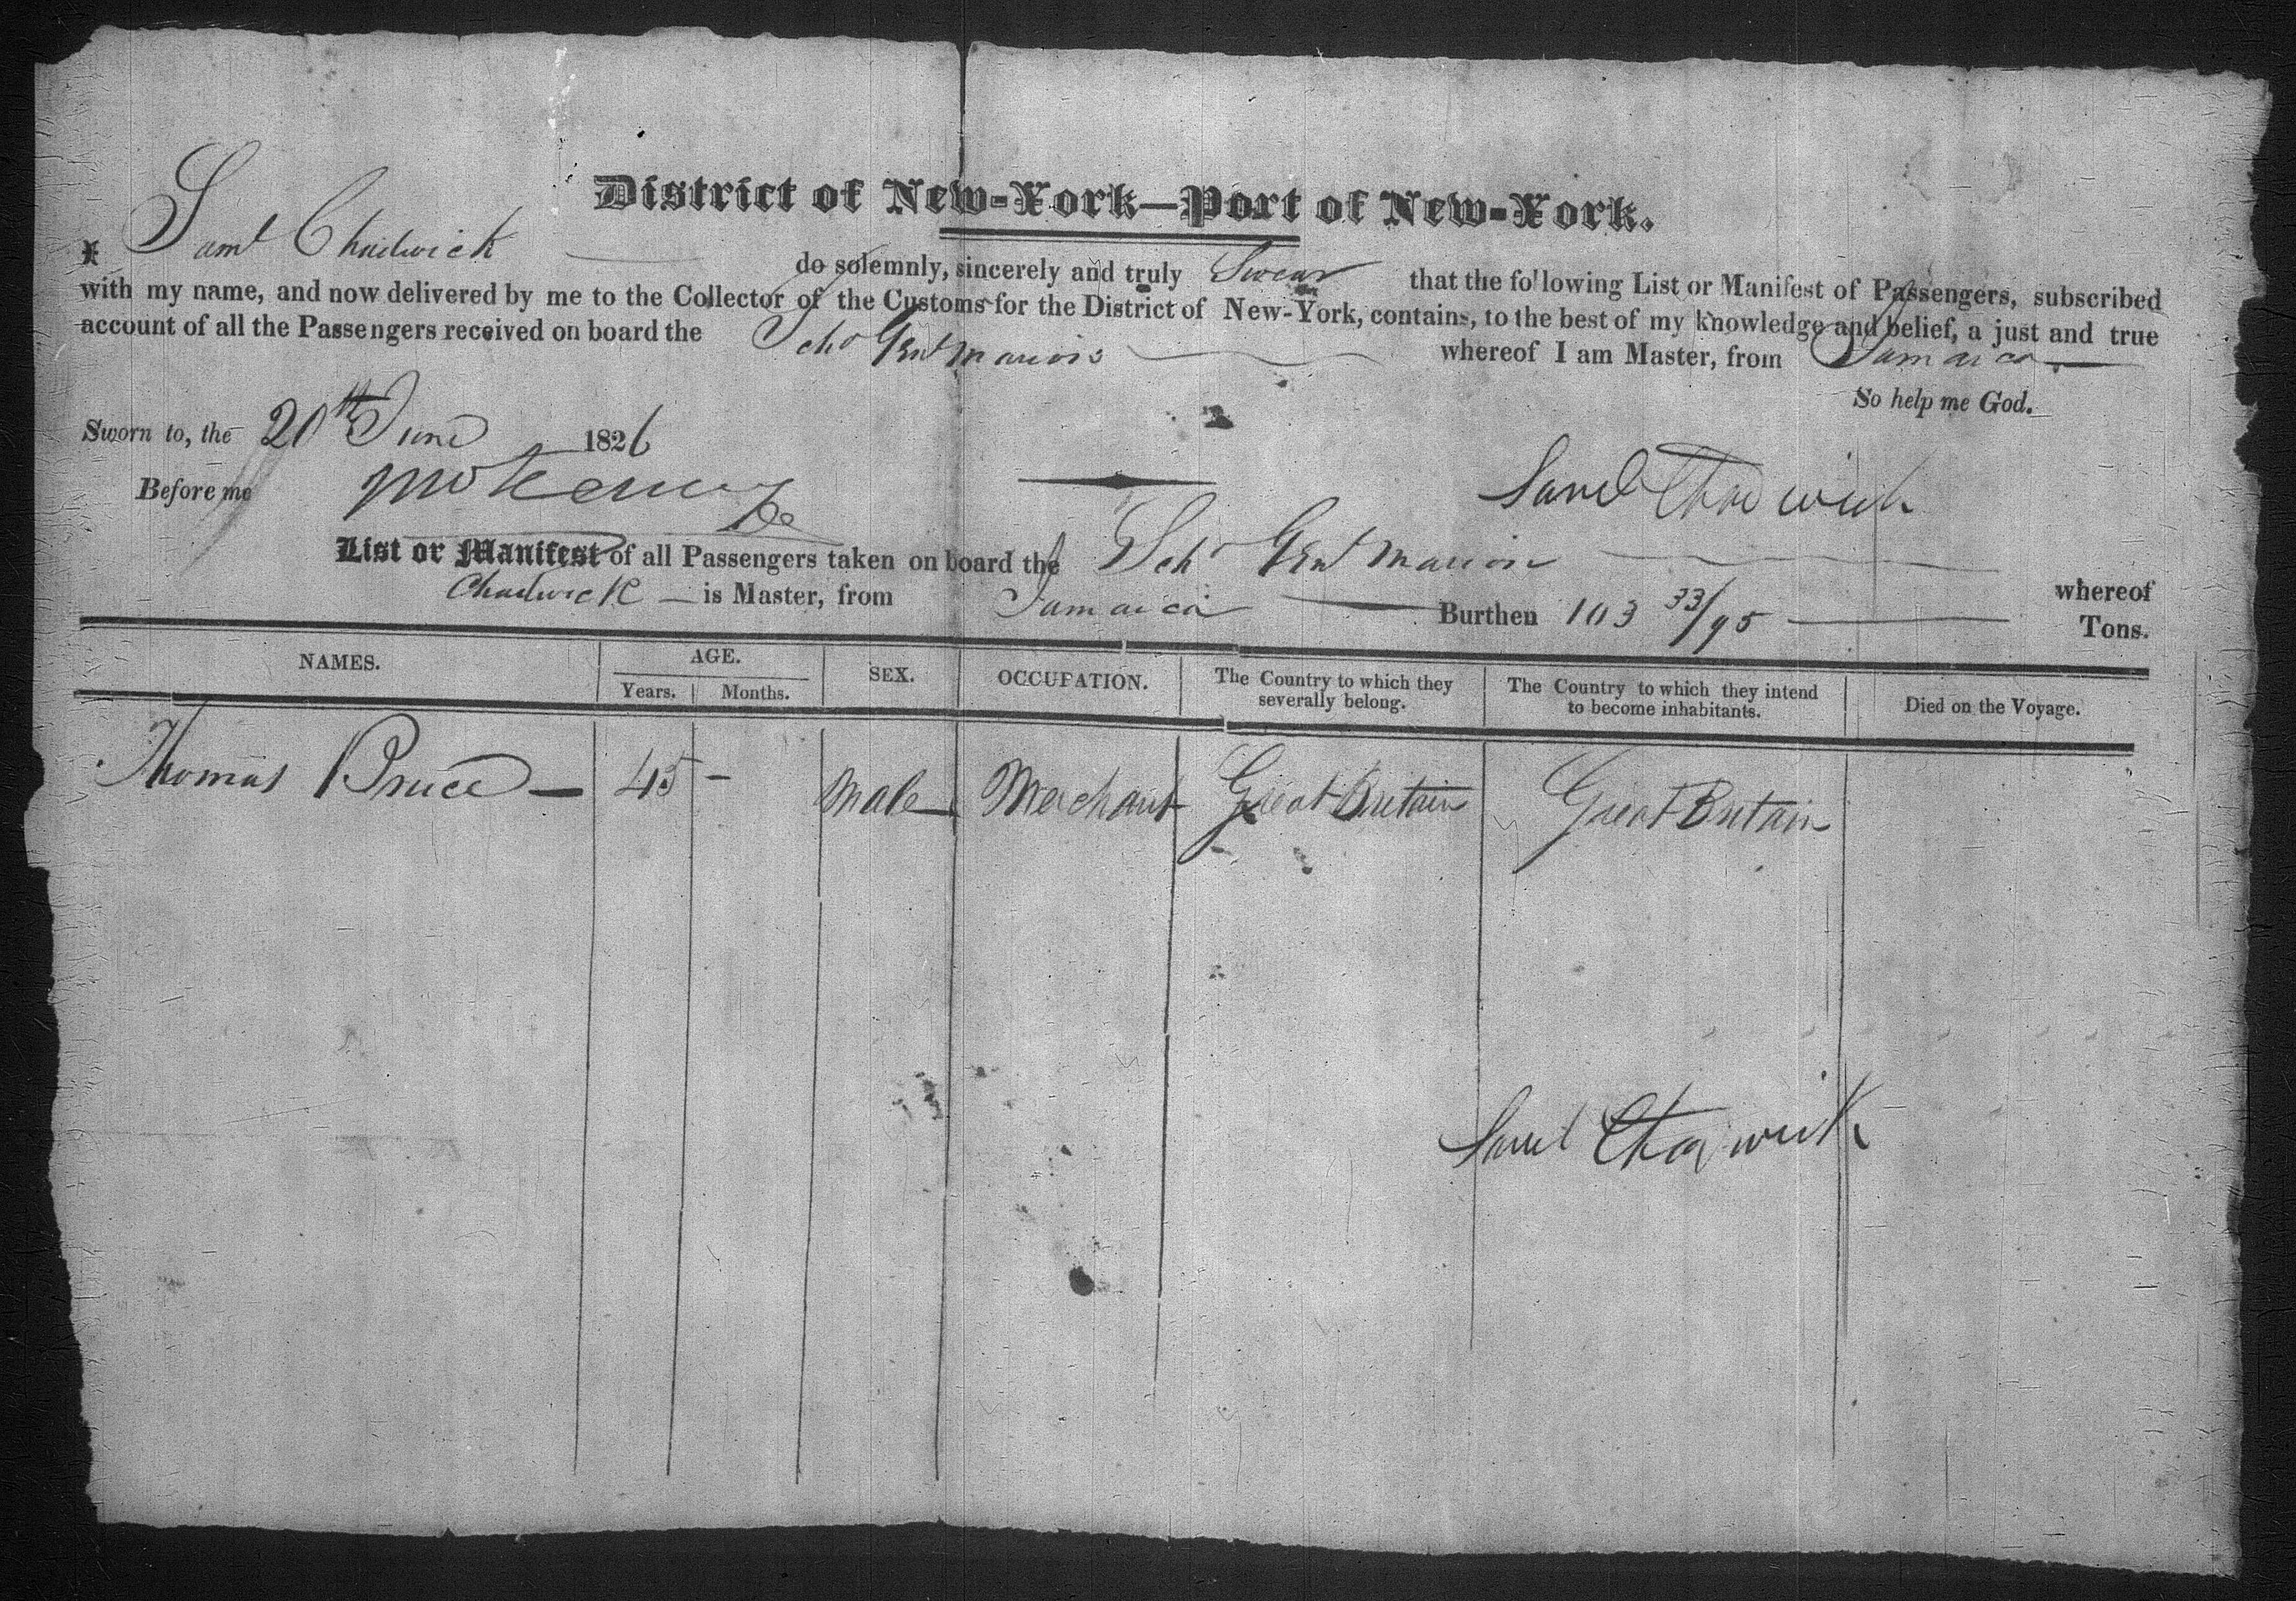 District of New-York—Port of New-York.
I Saml Chadwick do solemnly, sincerely and truly Swear that the following List or Manifest of Passengers, subscribed
with my name, and now delivered by me to the Collector of the Customs for the District of New-York, contains, to the best of my knowledge and belief, a just and true
account of all the Passengers received on board the Schr Genl Marion whereof I am Master, from Jamaica
So help me God.
Sworn to, the 20th June 1826
Before me
Saml Chadwick
List or Manifest of all Passengers taken on board the Schr Genl Marion whereof
Chadwick is Master, from Jamaica Burthen 103 33/95 Tons.
NAMES. AGE. SEX. OCCUPATION. The Country to which they severally belong. The Country to which they intend to become inhabitants. Died on the Voyage.
Years. Months.
Thomas Bruce — 45 — Male Merchant Great Britain Great Britain
Saml Chadwick